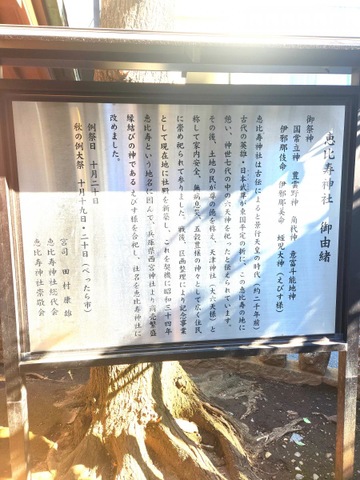 恵比寿神社 御由緒
御祭神
国常立神 豊雲野神 角代神 意富斗能地神
伊邪那岐命 伊邪那美命 蛭児大神(えびす様)
恵比寿神社は古伝によると景行天皇の時代(約二千年前)
古代の英雄・日本武尊が東国平定の折に、この恵比寿の地に
憩い、神世七代の中の六天神を祀ったと伝えられています。
その後、土地の民が尊の徳を称え、天津神社(大六天様)と
称して家内安全、無病息災、五穀豊穣の神々として広く住民
に崇め祀られてまいりました。戦後、区画整理により記念事業
として現在地に社殿を新築し、これを契機に昭和三十四年
恵比寿という地名に因んで、兵庫県西宮神社より商売繁盛
縁結びの神であるえびす様を合祀し、社名を恵比寿神社に
改めました。
例祭日 十月二十日
秋の例大祭 十月十九日・二十日(べったら市)
宮司 田村康雄
恵比寿神社総代会
恵比寿神社崇敬会